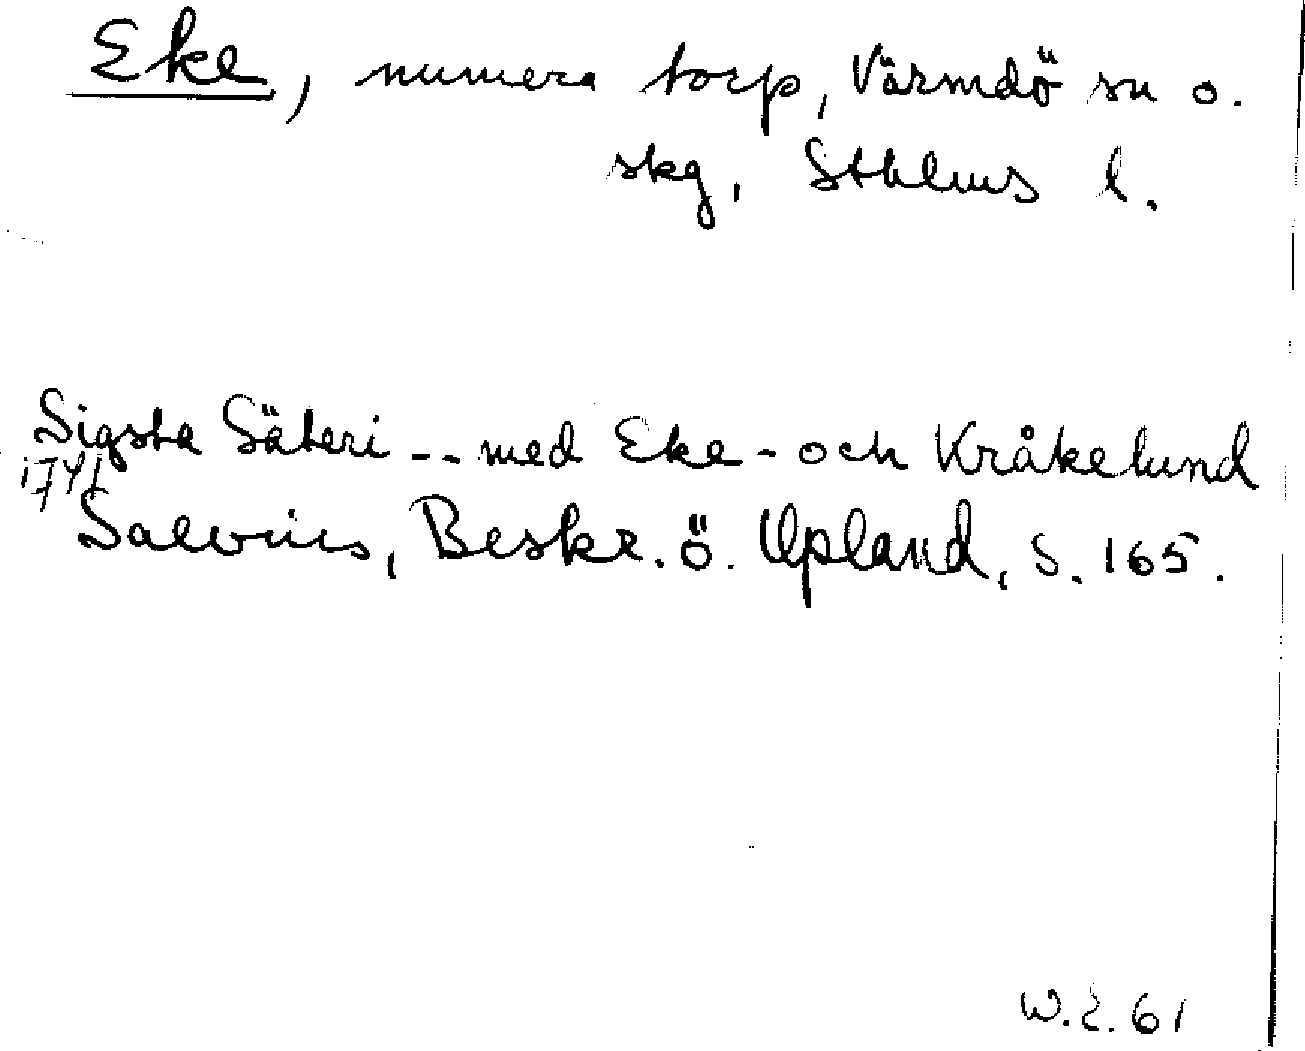 Eke, numera torp, Värmdö sn o.
skg, Sthlms l.
Sigsta Säteri -- med Eke- och Kråkelund
1741
Salvius, Beskr. ö. Upland, S. 165.
W.E. 61